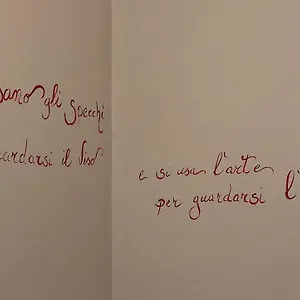 sano gli specchi
uardarsi il viso
e si usa l'arte
per guardarsi l'